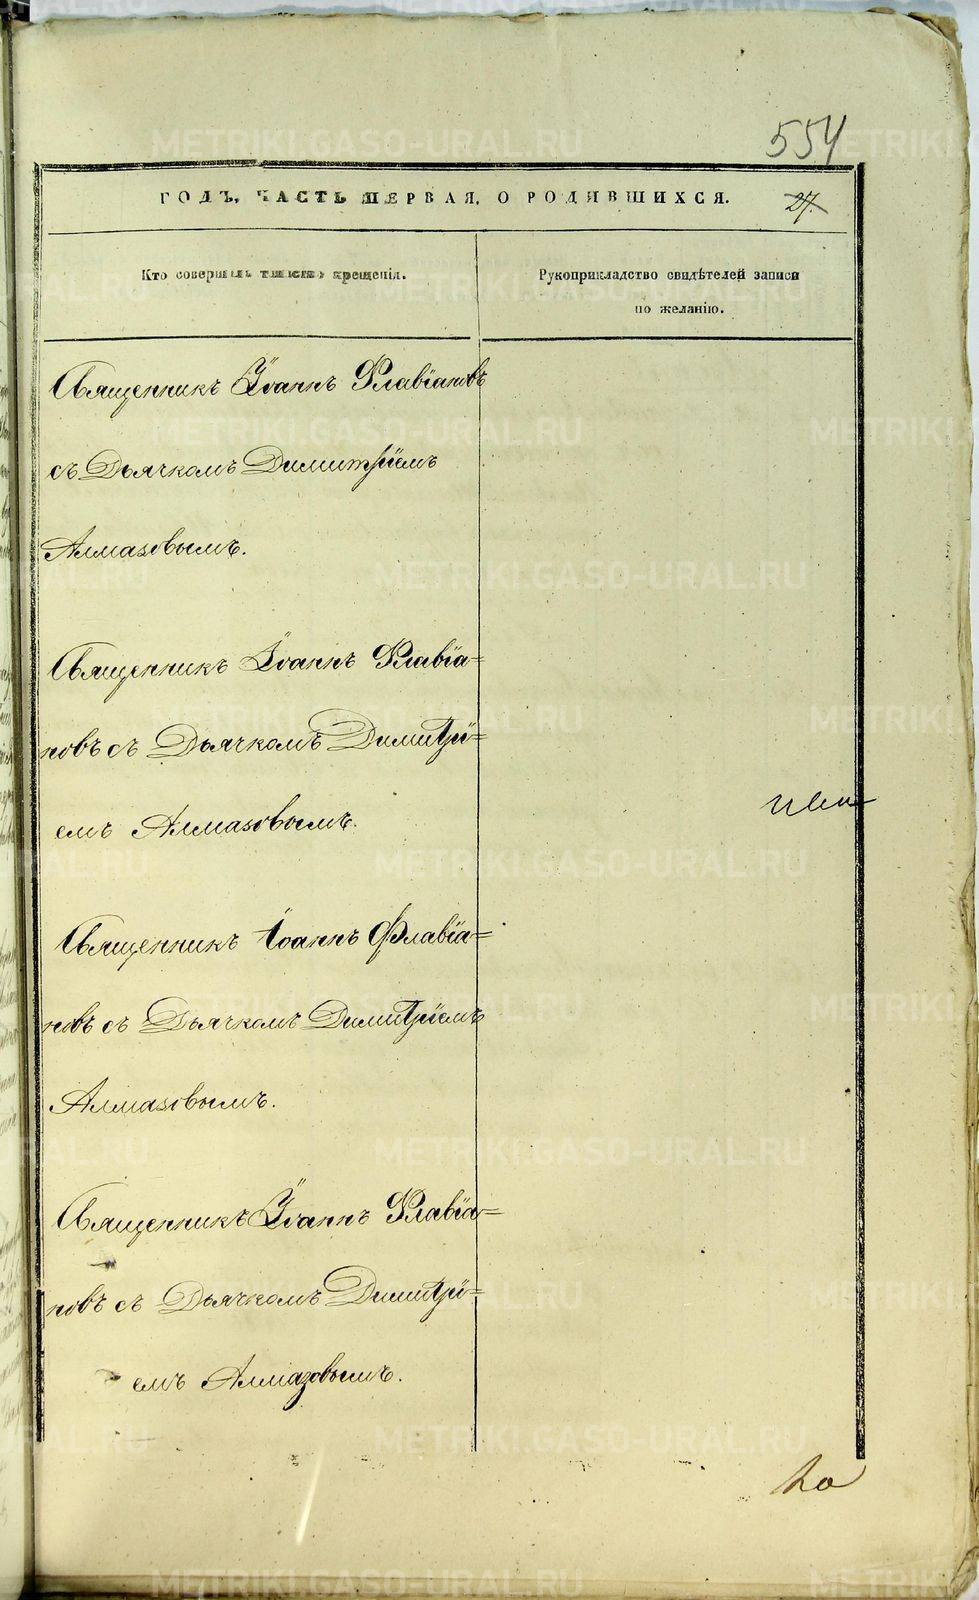 554
ГОДЪ, ЧАСТЬ ПЕРВАЯ, О РОДИВШИХСЯ.
27.
Кто совершалъ таинство крещенія.
Рукоприкладство свидѣтелей записи
по желанію.
Священникъ Іоаннъ Флавіановъ
съ Дьячкомъ Димитріемъ
Алмазовымъ.
Священникъ Іоаннъ Флавіа=
новъ съ Дьячкомъ Димитрі=
емъ Алмазовымъ.
Священникъ Іоаннъ Флавіа=
новъ съ Дьячкомъ Димитріемъ
Алмазовымъ.
Священникъ Іоаннъ Флавіа=
новъ съ Дьячкомъ Димитрі=
емъ Алмазовымъ.
METRIKI.GASO-URAL.RU